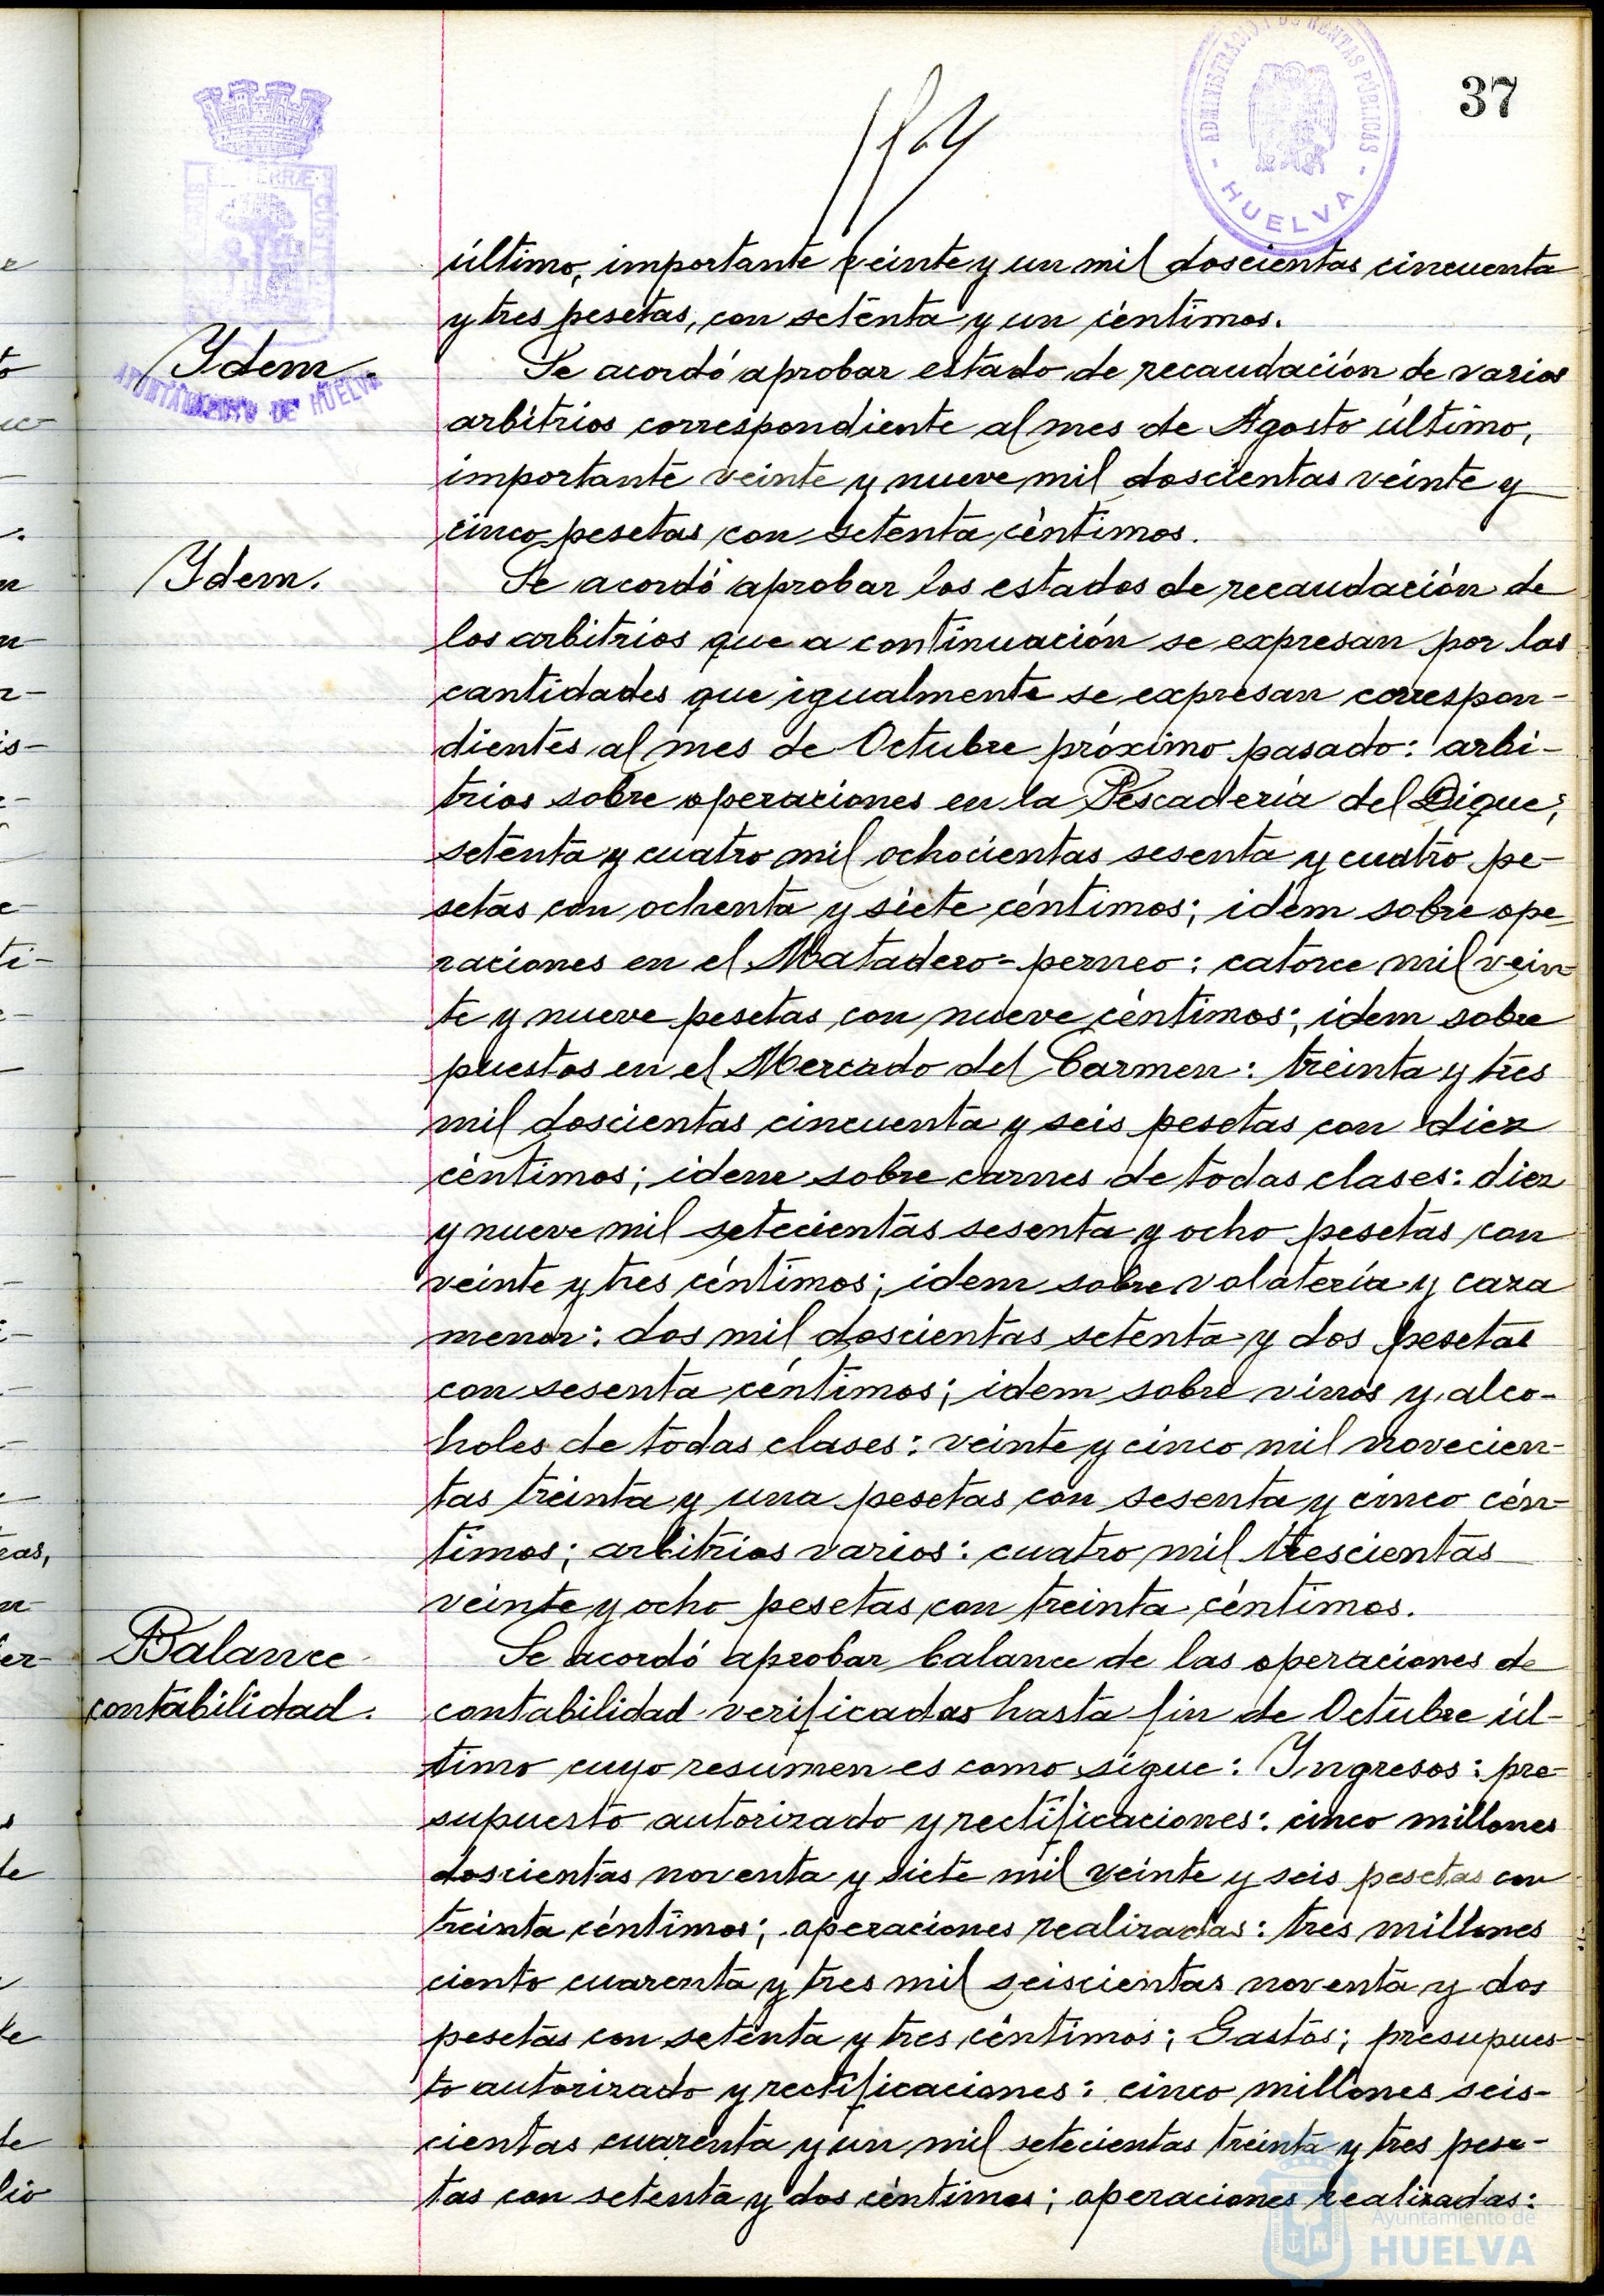 37
ADMINISTRACIÓN DE RENTAS PÚBLICAS
- HUELVA -
AYUNTAMIENTO DE HUELVA
último, importante veinte y un mil doscientas cincuenta
y tres pesetas, con setenta y un céntimos.
Ydem.
Se acordó aprobar estado de recaudación de varios
arbitrios correspondiente al mes de Agosto último,
importante veinte y nueve mil doscientas veinte y
cinco pesetas con setenta céntimos.
Ydem.
Se acordó aprobar los estados de recaudación de
los arbitrios que a continuación se expresan por las
cantidades que igualmente se expresan correspon-
dientes al mes de Octubre próximo pasado: arbi-
trios sobre operaciones en la Pescadería del Dique;
setenta y cuatro mil ochocientas sesenta y cuatro pe-
setas con ochenta y siete céntimos; idem sobre ope-
raciones en el Matadero-perneo: catorce mil vein-
te y nueve pesetas con nueve céntimos; idem sobre
puestos en el Mercado del Carmen: treinta y tres
mil doscientas cincuenta y seis pesetas con diez
céntimos; idem sobre carnes de todas clases: diez
y nueve mil setecientas sesenta y ocho pesetas con
veinte y tres céntimos; idem sobre volatería y caza
menor: dos mil doscientas setenta y dos pesetas
con sesenta céntimos; idem sobre vinos y alco-
holes de todas clases: veinte y cinco mil novecien-
tas treinta y una pesetas con sesenta y cinco cén-
timos; arbitrios varios: cuatro mil trescientas
veinte y ocho pesetas con treinta céntimos.
Balance
contabilidad.
Se acordó aprobar balance de las operaciones de
contabilidad verificadas hasta fin de Octubre úl-
timo cuyo resumen es como sigue: Ingresos: pre-
supuesto autorizado y rectificaciones: cinco millones
doscientas noventa y siete mil veinte y seis pesetas con
treinta céntimos; operaciones realizadas: tres millones
ciento cuarenta y tres mil seiscientas noventa y dos
pesetas con setenta y tres céntimos; Gastos; presupues-
to autorizado y rectificaciones: cinco millones seis-
cientas cuarenta y un mil setecientas treinta y tres pese-
tas con setenta y dos céntimos; operaciones realizadas:
Ayuntamiento de
HUELVA